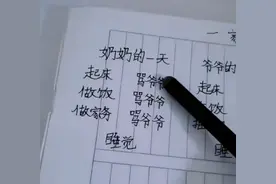 一家
奶奶的一天
起床 骂爷爷
做饭 骂爷爷
做家务 骂爷爷
睡觉
爷爷的
起床
做饭
睡